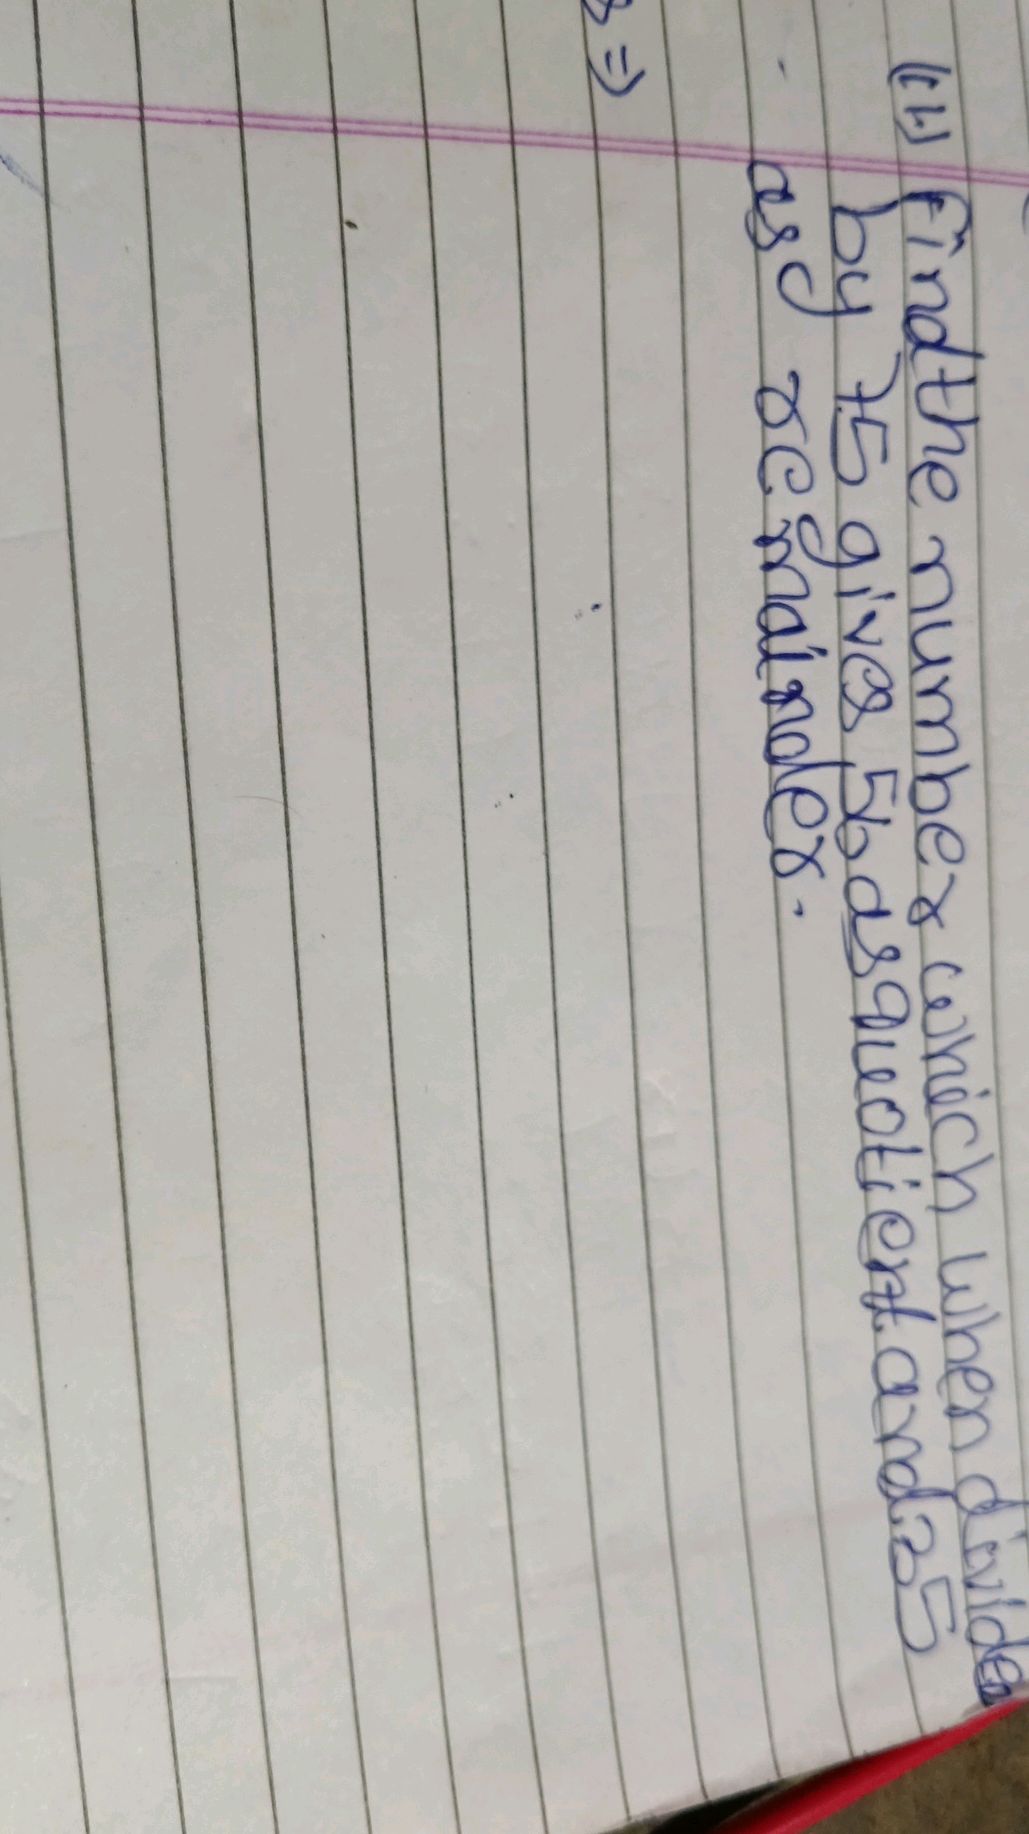 (ii) Find the number which when divided
by 75 gives 56 as quotient and 25
as remainder.
s ⇒